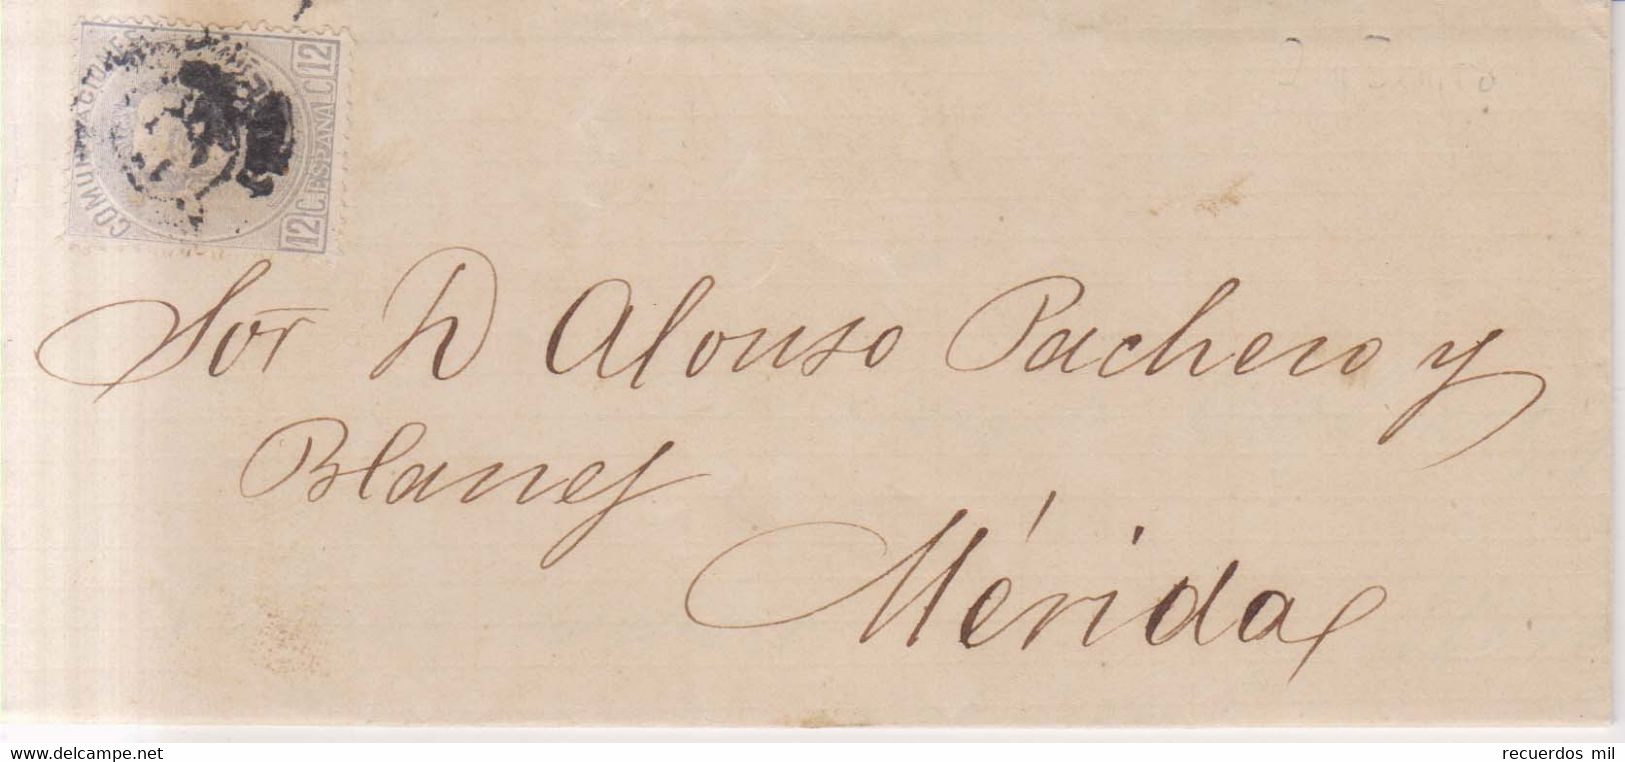 COMUNICACIONES
12 C. ESPAÑA. C. 12
Sor D Alonso Pacheco y
Blanes
Mérida
www.delcampe.net
recuerdos mil